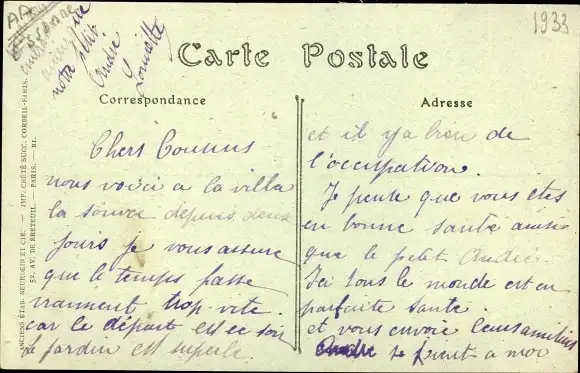 AA
1933
Carte Postale
Correspondance
Adresse
ANCIENS ÉTAB. NEURDEIN ET CIE. — IMP. CRÉTÉ SUCC. CORBEIL-PARIS.
52, AV. DE BRETEUIL. — PARIS. — BI.
notre petit
André
Louisette
Chers Cousins
nous voici a la villa
la source depuis deux
jours je vous assure
que le temps passe
vraiment trop vite.
car le départ est ce soir
Le jardin est superbe.
et il y a bien de
l'occupation.
Je pense que vous etes
en bonne santé ainsi
que le petit André.
Ici tous le monde est en
parfaite santé.
et vous envoie leurs amitiés
se joient a moi